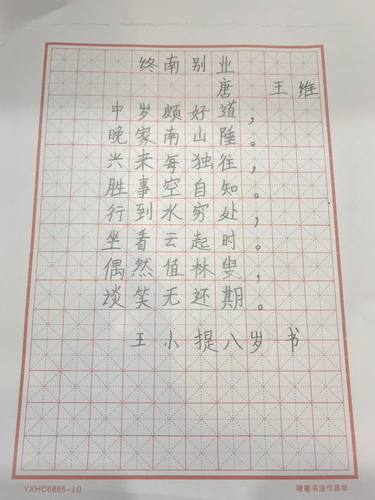 终南别业
唐 王维
中岁颇好道，
晚家南山陲。
兴来每独往，
胜事空自知。
行到水穷处，
坐看云起时。
偶然值林叟，
谈笑无还期。
王小提八岁书
YXHC6865-10 硬笔书法作品纸